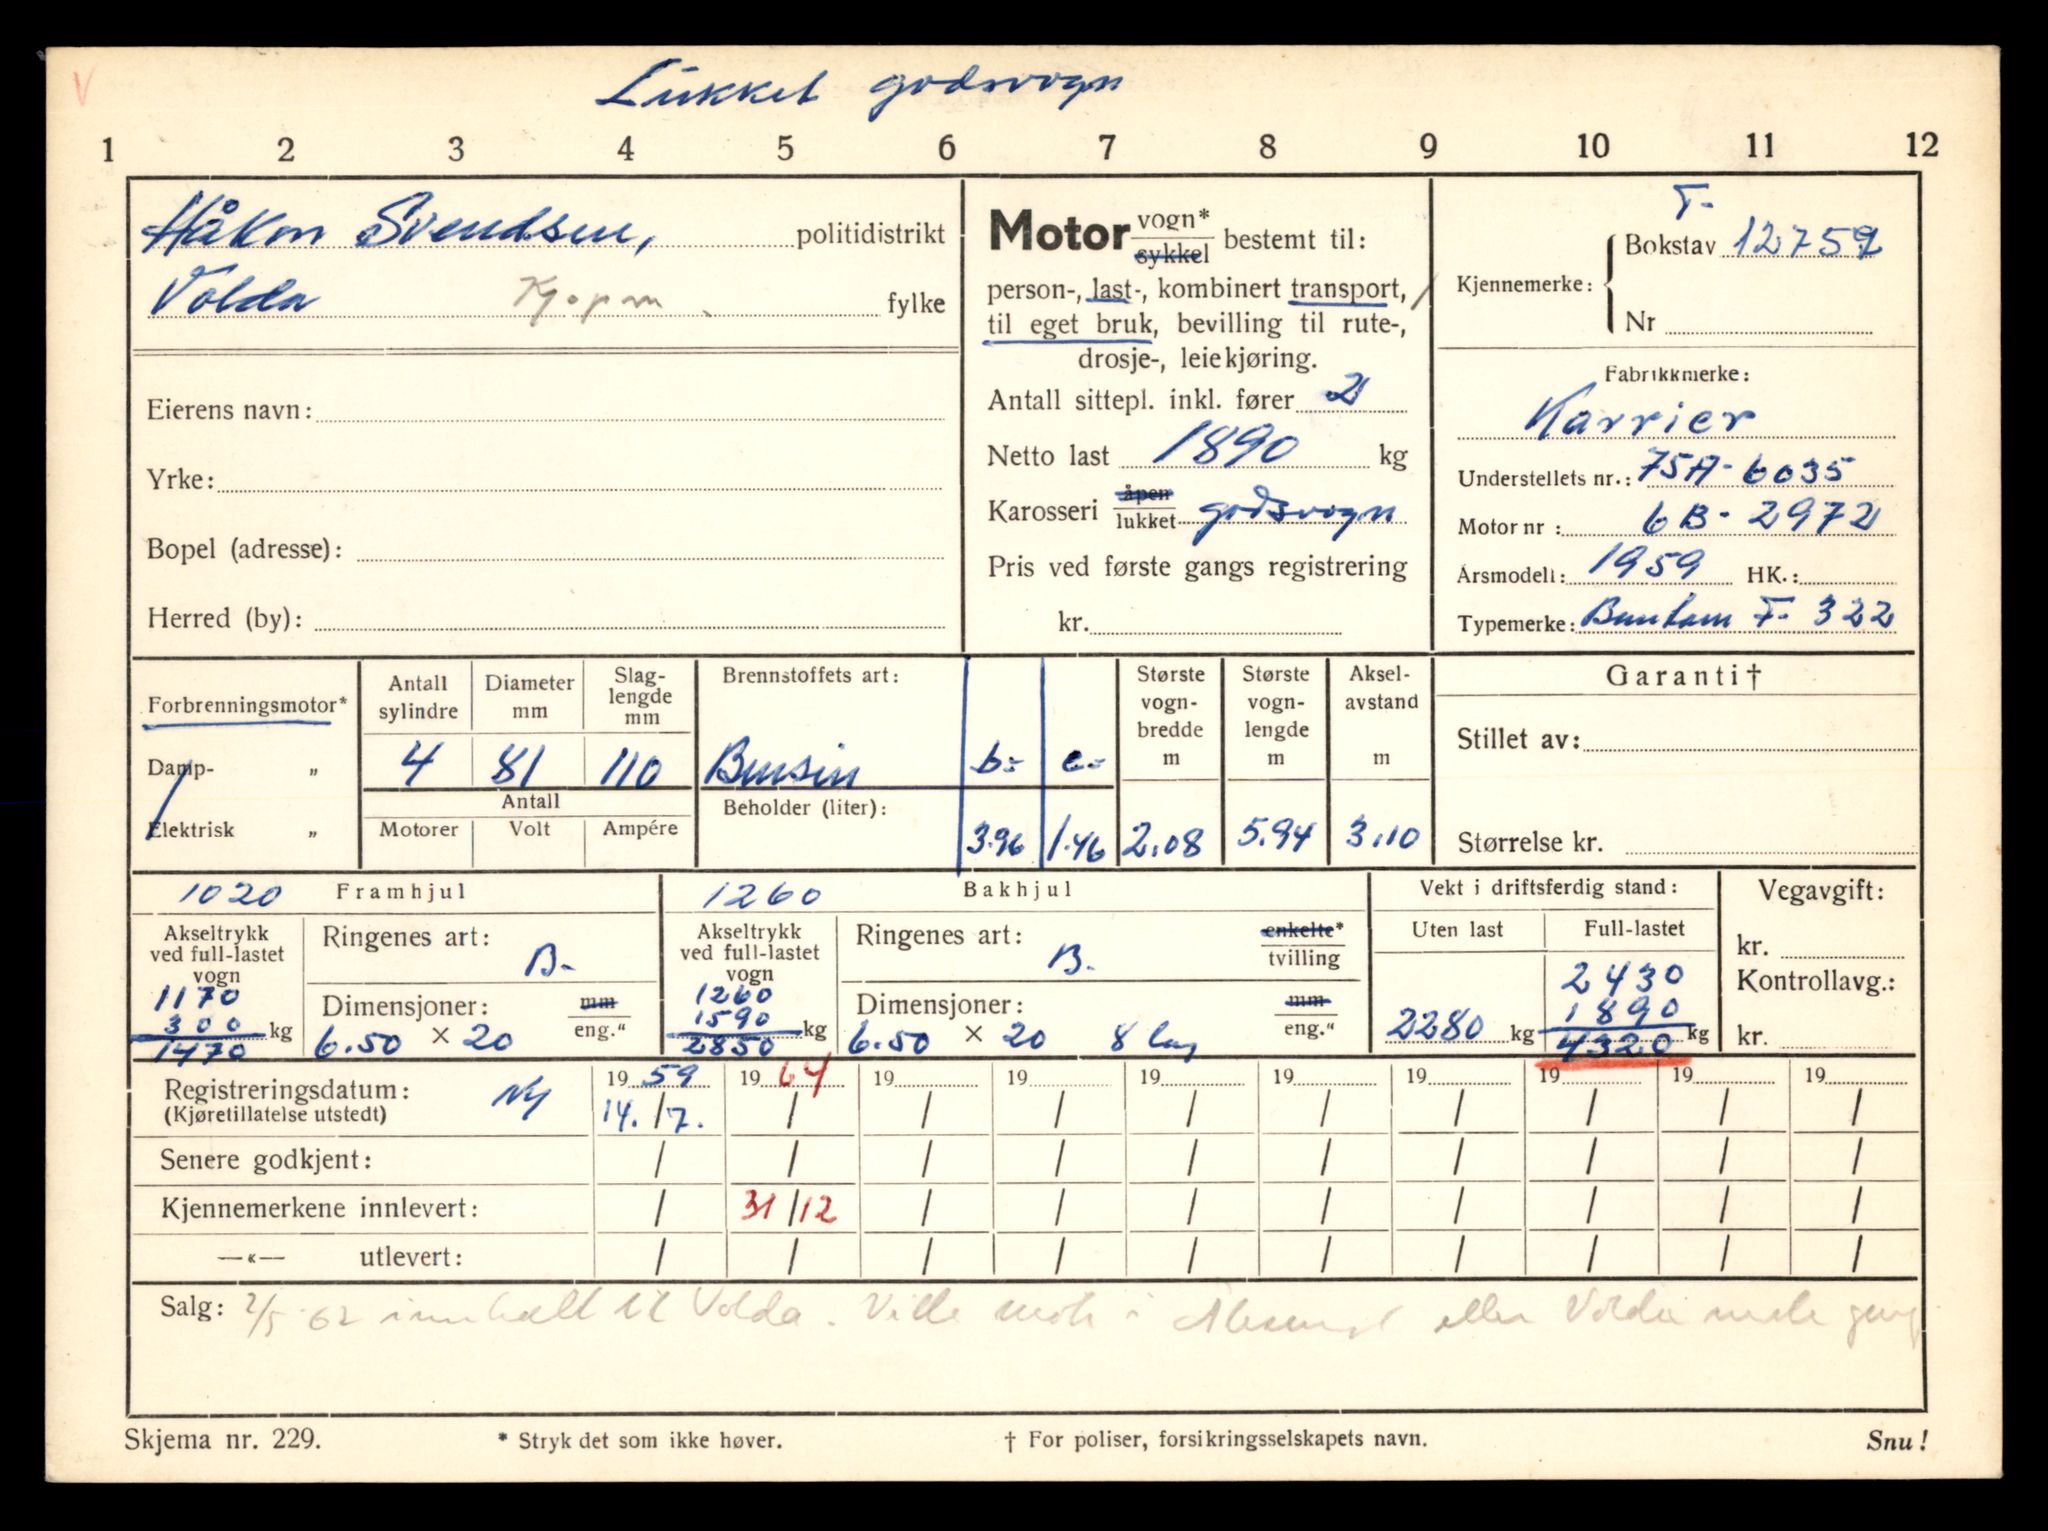 V
Lukket godsvogn
1 2 3 4 5 6 7 8 9 10 11 12
Håkon Svendsen, politidistrikt
Volda Kjøpm. fylke
Eierens navn:
Yrke:
Bopel (adresse):
Herred (by):
Motor vogn* sykkel bestemt til:
person-, last-, kombinert transport,
til eget bruk, bevilling til rute-,
drosje-, leiekjøring.
Antall sittepl. inkl. fører 2
Netto last 1890 kg
Karosseri åpen lukket godsvogn
Pris ved første gangs registrering
kr.
T-
Kjennemerke: Bokstav 12759
Nr
Fabrikkmerke:
Karrier
Understellets nr.: 75A-6035
Motor nr: 6B-2972
Årsmodell: 1959 HK.:
Typemerke: Bantam F. 322
Forbrenningsmotor*
Damp- „
Elektrisk „
Antall sylindre Diameter mm Slaglengde mm
4 81 110
Antall
Motorer Volt Ampére
Brennstoffets art:
Bensin
Beholder (liter):
b:- c:-
3.96 1.46
Største vognbredde m
2.08
Største vognlengde m
5.94
Akselavstand m
3.10
Garanti†
Stillet av:
Størrelse kr.
1020 Framhjul
Akseltrykk
ved full-lastet
vogn
1170
300 kg
1470
Ringenes art:
B-
Dimensjoner: mm eng."
6.50 × 20
1260 Bakhjul
Akseltrykk
ved full-lastet
vogn
1260
1590 kg
2850
Ringenes art: enkelte* tvilling
B.
Dimensjoner: mm eng."
6.50 × 20 8 lag
Vekt i driftsferdig stand:
Uten last Full-lastet
2430
1890
2280 kg 4320 kg
Vegavgift:
kr.
Kontrollavg.:
kr.
Registreringsdatum: Ny 19 59 19 64 19 19 19 19 19 19 19 19
(Kjøretillatelse utstedt) 14. / 7. / / / / / / / / /
Senere godkjent: / / / / / / / / / /
Kjennemerkene innlevert: / 31/12 / / / / / / / /
—«— utlevert: / / / / / / / / / /
Salg: 2/5 62 innkalt til Volda. Ville møte i Ålesund eller Volda neste gang
Skjema nr. 229. * Stryk det som ikke høver. † For poliser, forsikringsselskapets navn. Snu!